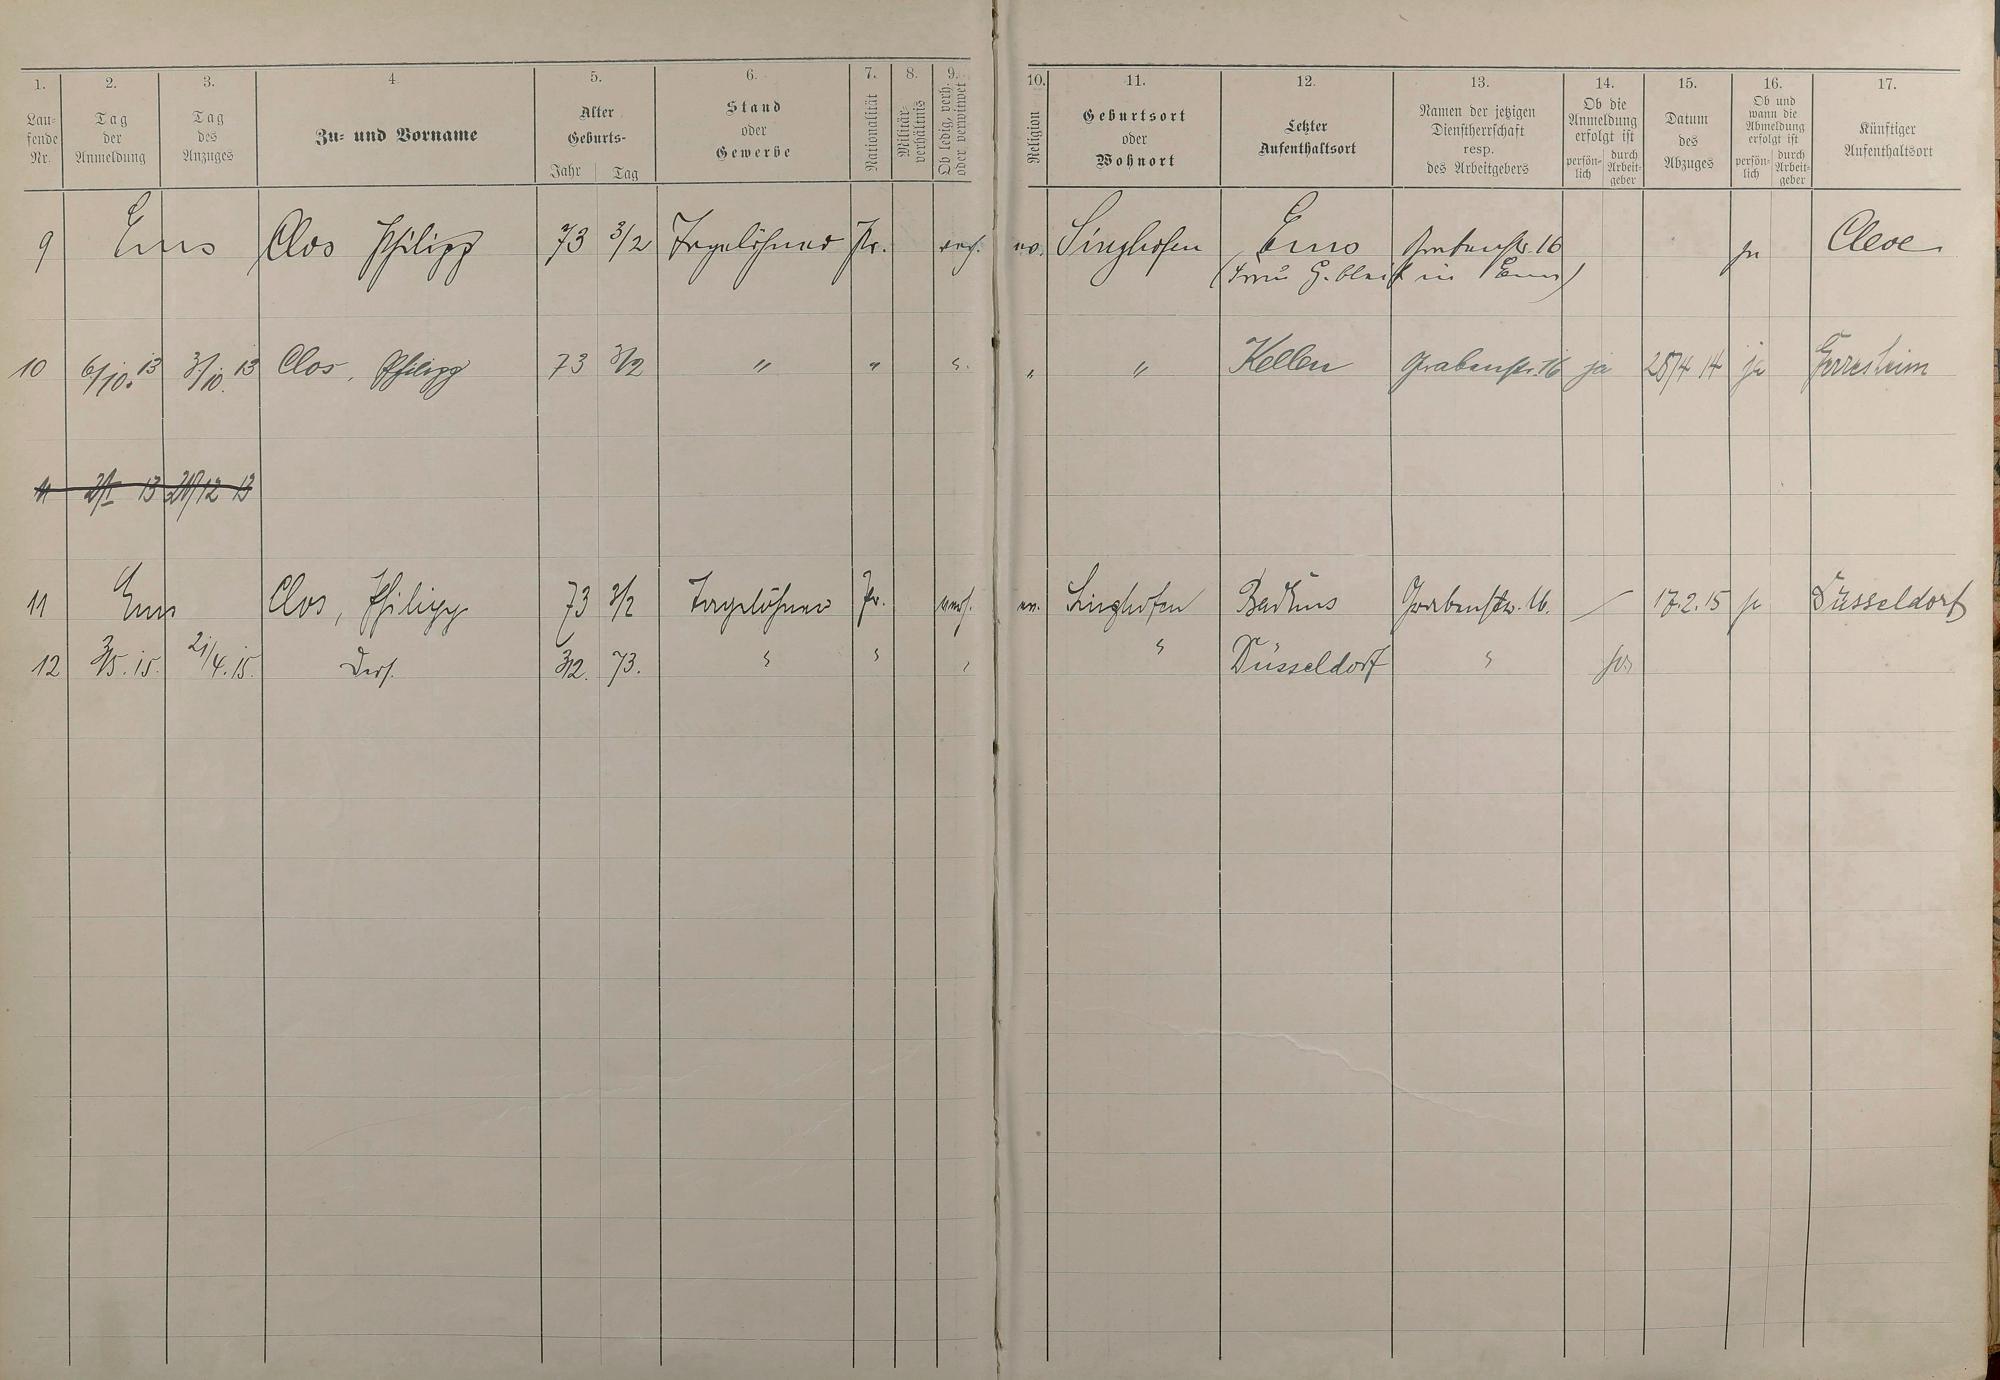 1. 2. 3. 4. 5. 6. 7. 8. 9. 10. 11. 12. 13. 14. 15. 16. 17.
Lau-
fende
Nr.
Tag
der
Anmeldung
Tag
des
Anzuges
Zu- und Vorname
Alter
Geburts-
Jahr Tag
Stand
oder
Gewerbe
Nationalität
Militär-
verhältnis
Ob ledig, verh.
oder verwitwet
Religion
Geburtsort
oder
Wohnort
Letzter
Aufenthaltsort
Namen der jetzigen
Dienstherrschaft
resp.
des Arbeitgebers
Ob die
Anmeldung
erfolgt ist
persön-
lich
durch
Arbeit-
geber
Datum
des
Abzuges
Ob und
wann die
Abmeldung
erfolgt ist
persön-
lich
durch
Arbeit-
geber
Künftiger
Aufenthaltsort
9 Ems Clos Philipp 73 3/2 Tagelöhner Pr. verh. ev. Singhofen Ems Grabenstr. 16 ja Cleve
(Frau G. bleibt in Ems)
10 6/10. 13 3/10. 13 Clos, Philipp 73 3/2 " " " " " Kellen Grabenstr. 16 ja 28/4 14 ja Gerresheim
11 13 29/12 13
11 Ems Clos, Philipp 73 3/2 Tagelöhner Pr. verh. ev. Singhofen Bad Ems Grabenstr. 16. / 17.2.15 ja Düsseldorf
12 3/5. 15. 21/4. 15. Ders. 3/2. 73. " " " " Düsseldorf " ja